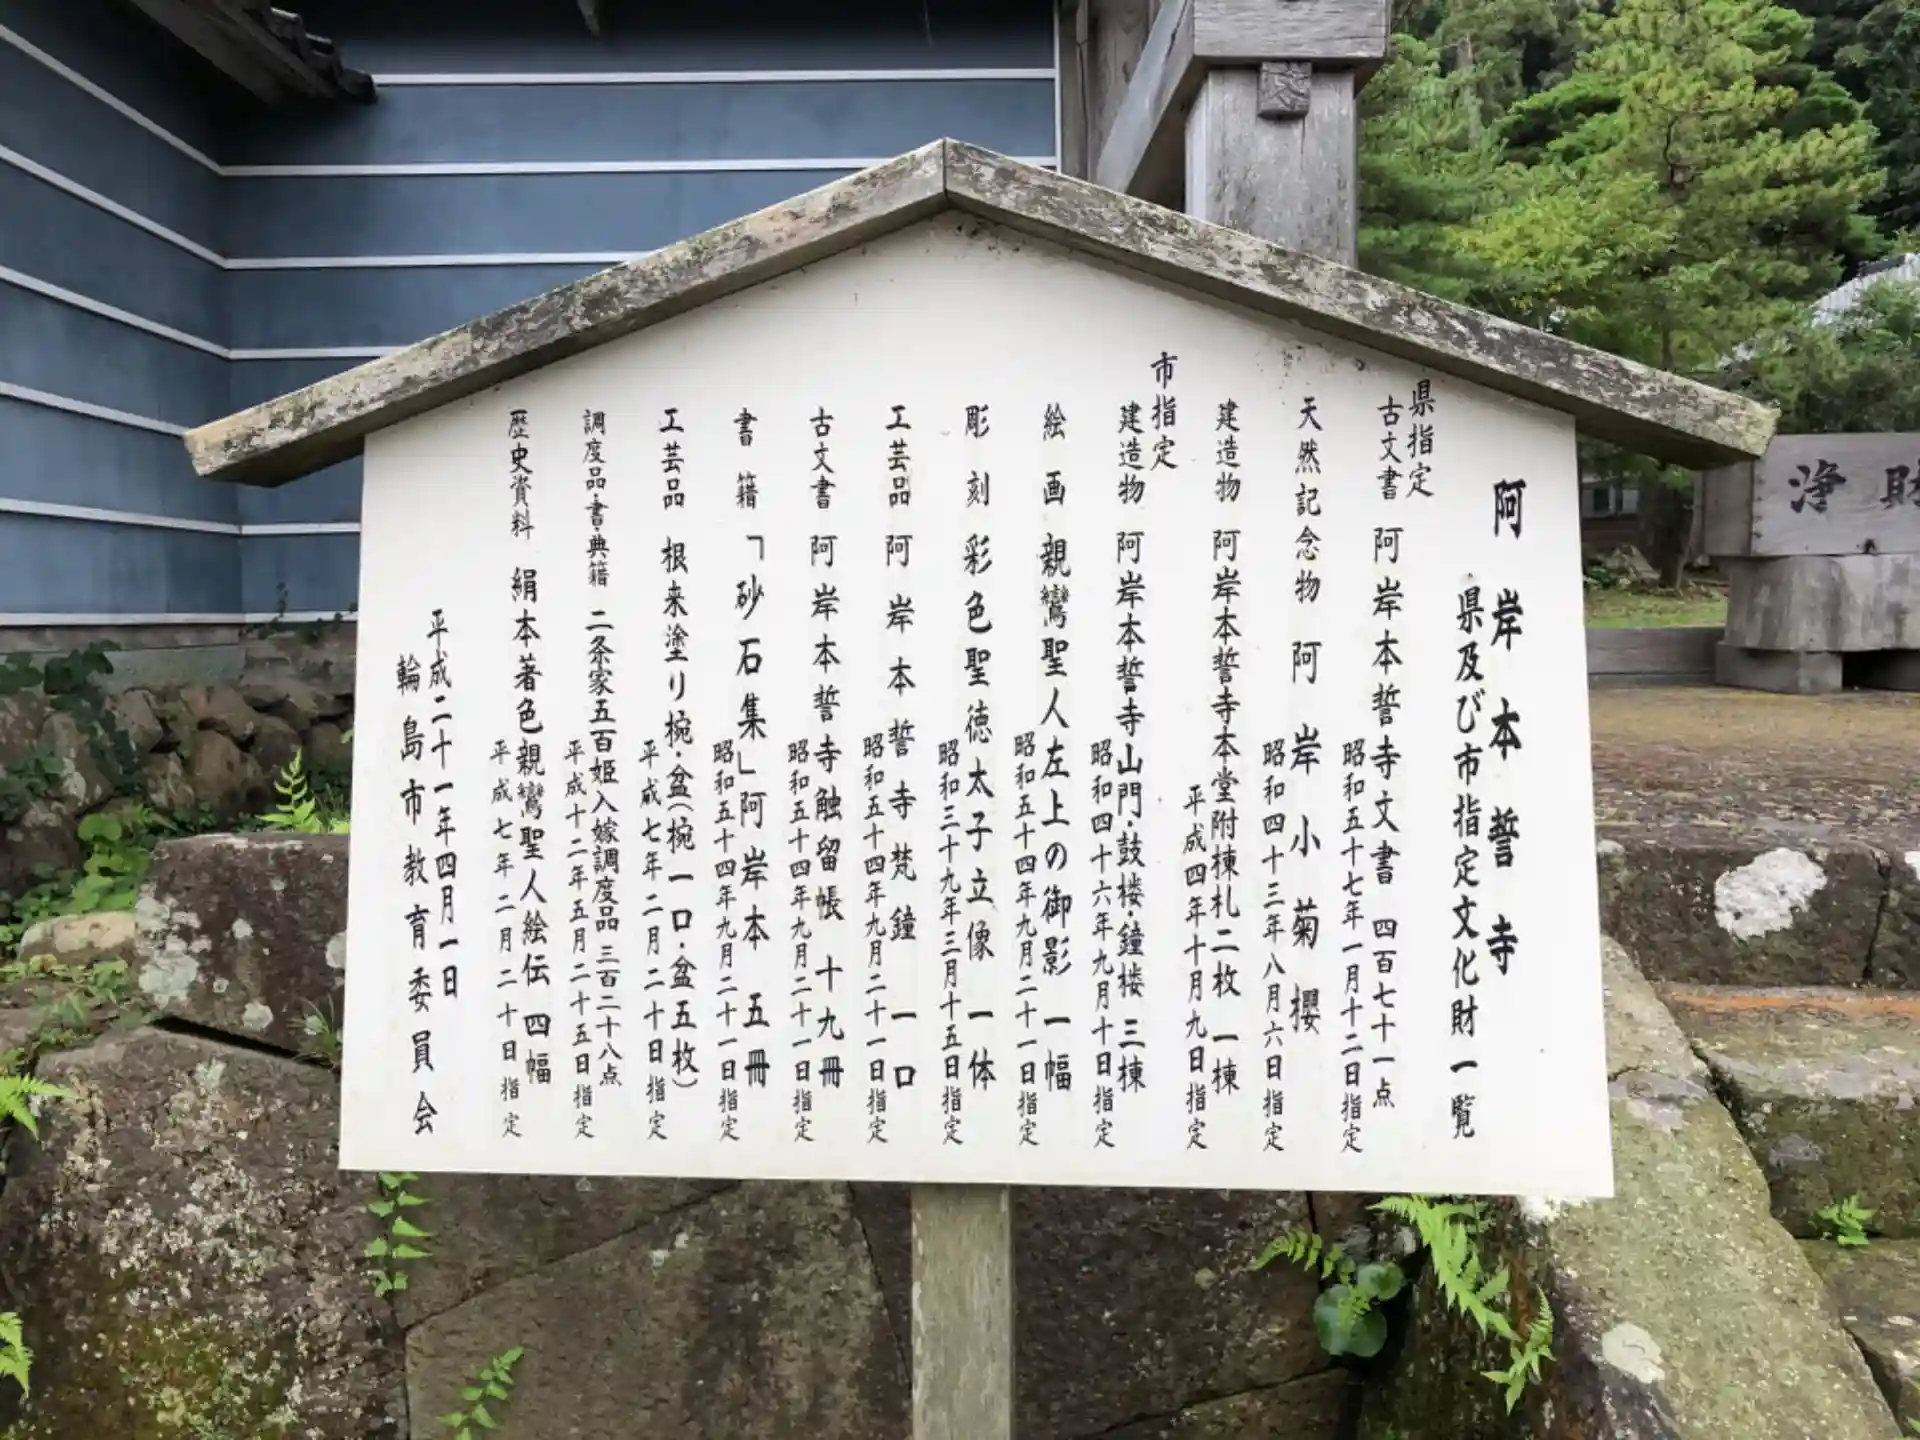 阿岸本誓寺
県及び市指定文化財一覧
県指定
古文書 阿岸本誓寺文書 四百七十一点
昭和五十七年一月十二日指定
天然記念物 阿岸小菊櫻
昭和四十三年八月六日指定
建造物 阿岸本誓寺本堂附棟札二枚 一棟
平成四年十月九日指定
市指定
建造物 阿岸本誓寺山門・鼓楼・鐘楼 三棟
昭和四十六年九月十日指定
絵画 親鸞聖人左上の御影 一幅
昭和五十四年九月二十一日指定
彫刻 彩色聖徳太子立像 一体
昭和三十九年三月十五日指定
工芸品 阿岸本誓寺梵鐘 一口
昭和五十四年九月二十一日指定
古文書 阿岸本誓寺触留帳 十九冊
昭和五十四年九月二十一日指定
書籍 「砂石集」阿岸本 五冊
昭和五十四年九月二十一日指定
工芸品 根来塗リ椀・盆(椀一口・盆五枚)
平成七年二月二十日指定
調度品・書・典籍 二条家五百姫入嫁調度品 三百二十八点
平成十二年五月二十五日指定
歴史資料 絹本著色親鸞聖人絵伝 四幅
平成七年二月二十日指定
平成二十一年四月一日
輪島市教育委員会
浄財